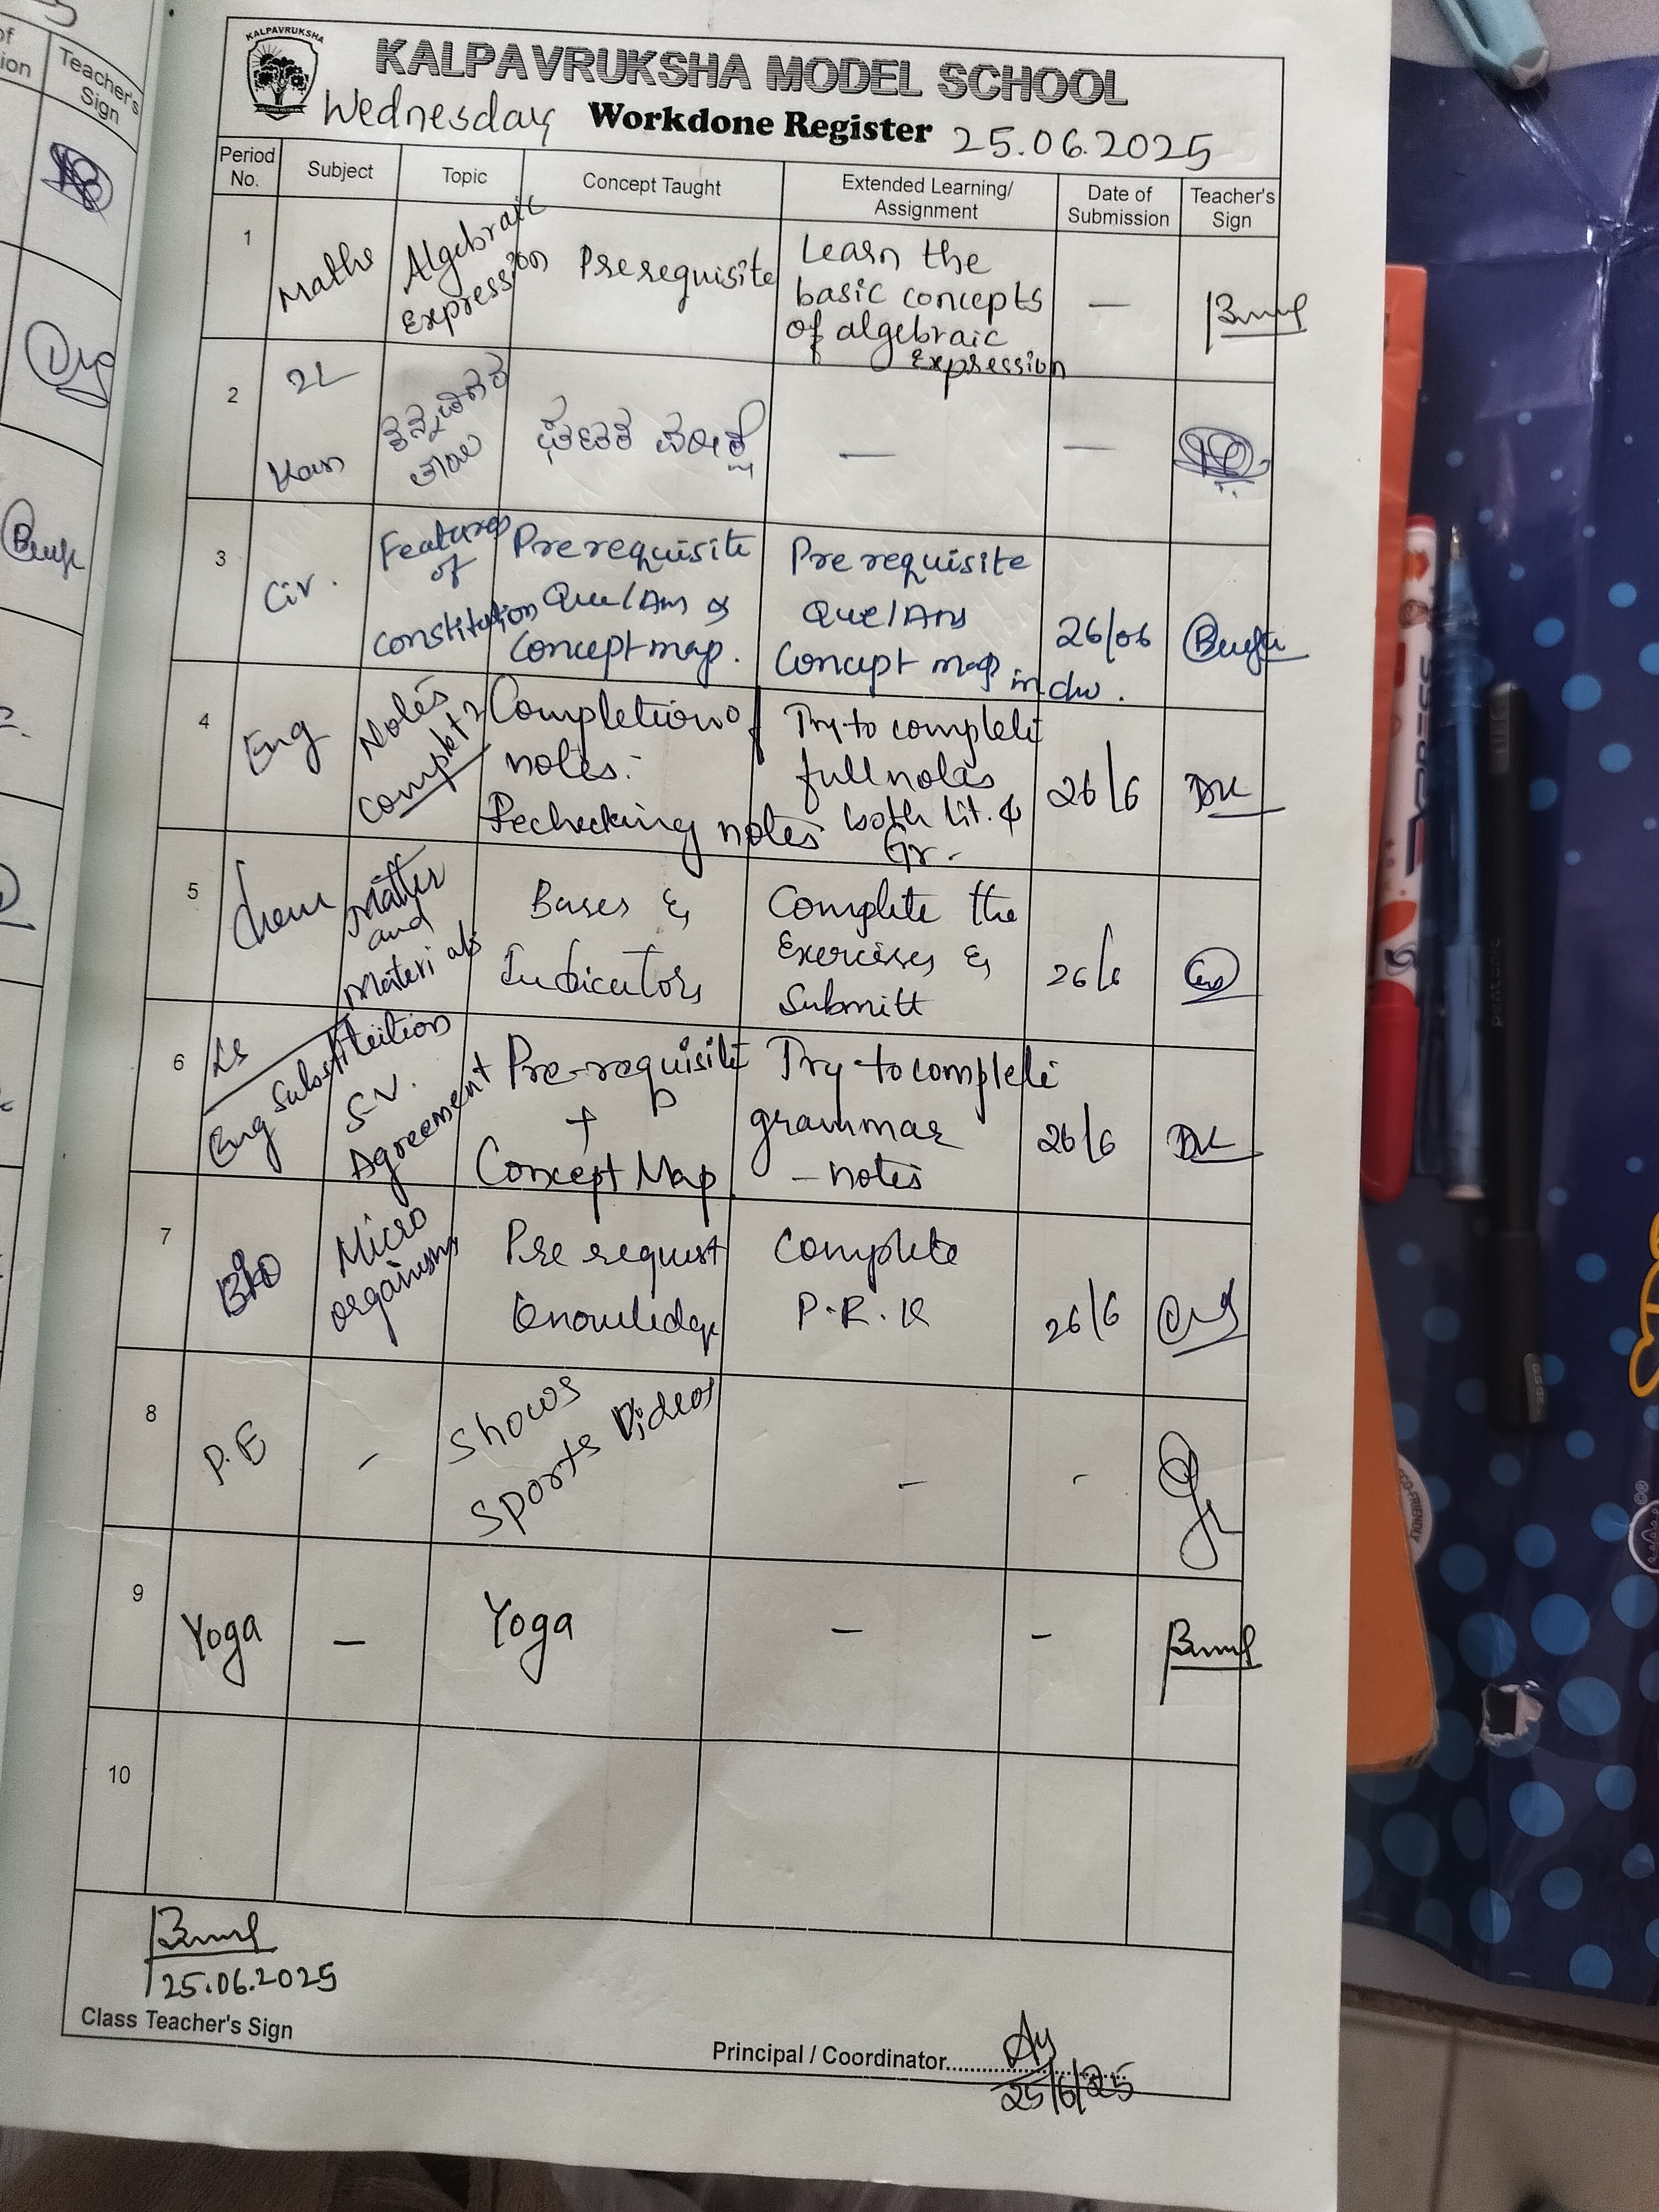 of
ion
Teacher's
Sign
KALPAVRUKSHA
KALPAVRUKSHA MODEL SCHOOL
Wednesday Workdone Register 25.06.2025
Period No. Subject Topic Concept Taught Extended Learning/ Assignment Date of Submission Teacher's Sign
1 Maths Algebraic Expression Prerequisite Learn the basic concepts of algebraic Expression —
2 2L Kan — —
3 Civ. Features of constitution Prerequisite Que/Ans & Concept map. Prerequisite Que/Ans Concept map in cw. 26/06
4 Eng Notes Completion of notes. Rechecking notes Try to complete full notes both lit. & Gr. 26/6 DK
5 Chem Matter and Materials Bases & Indicators Complete the Exercises & Submitt 26/6
6 Ls Eng Substitution S.V. Agreement Pre-requisite + Concept Map Try to complete grammar - notes 26/6 DK
7 Bio Micro organisms Pre request knowledge Complete P.R.K 26/6
8 P.E - Shows Sports Videos - -
9 Yoga — Yoga — -
10
25.06.2025
Class Teacher's Sign
Principal / Coordinator
25/6/25